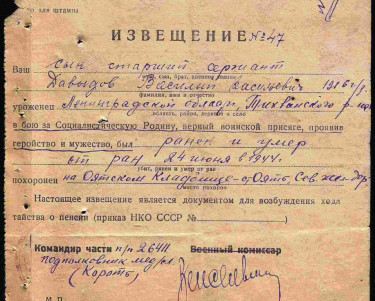 для штампа
ИЗВЕЩЕНИЕ №47
Ваш сын старший сержант
Давыдов Василий Васильевич 1916 г/р
фамилия, имя и отчество
уроженец Ленинградской област, Тихвинского р-
область, район, деревня и село
в бою за Социалистическую Родину, верный воинской присяге, проявив
геройство и мужество, был ранен и умер
от ран 24 июня 1944г.
убит, ранен и умер от ран
похоронен на Оятском Кладбище Оять Сев.
место похорон
Настоящее извещение является документом для возбуждения хода
тайства о пенсии (приказ НКО СССР №
Командир части п/п 26411 Военный комиссар
подполковник мед/сл
М. П.